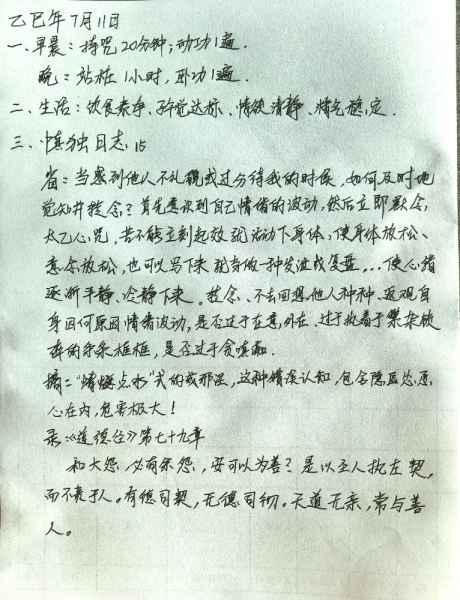 乙巳年7月11日
一、早晨：持咒20分钟；动功1遍。
晚：站桩1小时，卧功1遍。
二、生活：饮食素净、孙觉达标、情欲清静、精气稳定.
三、慎独日志15
省：当感到他人不礼貌或过分待我的时候，如何及时地
觉知并转念？首先意识到自己情绪的波动，然后立即默念，
太乙心咒，若不能立刻起效就活动下身体，使身体放松、
意念放松，也可以写下来 一种发泄或复盘，… 使心绪
逐渐平静、冷静下来。转念、不去回想他人种种、返观自
身因何原因情绪波动，是否过于在意外在、过于执着于
的条条框框，是否过于贪嗔痴.
摘："蜻蜓点水"式的戒邪淫，这种错误认知，包含隐匿 愿
心在内，危害极大！
录：《道德经》第七十九章
和大怨，必有余怨，安可以为善？是以圣人执左契，
而不责于人。有德司契，无德司彻。天道无亲，常与善
人。